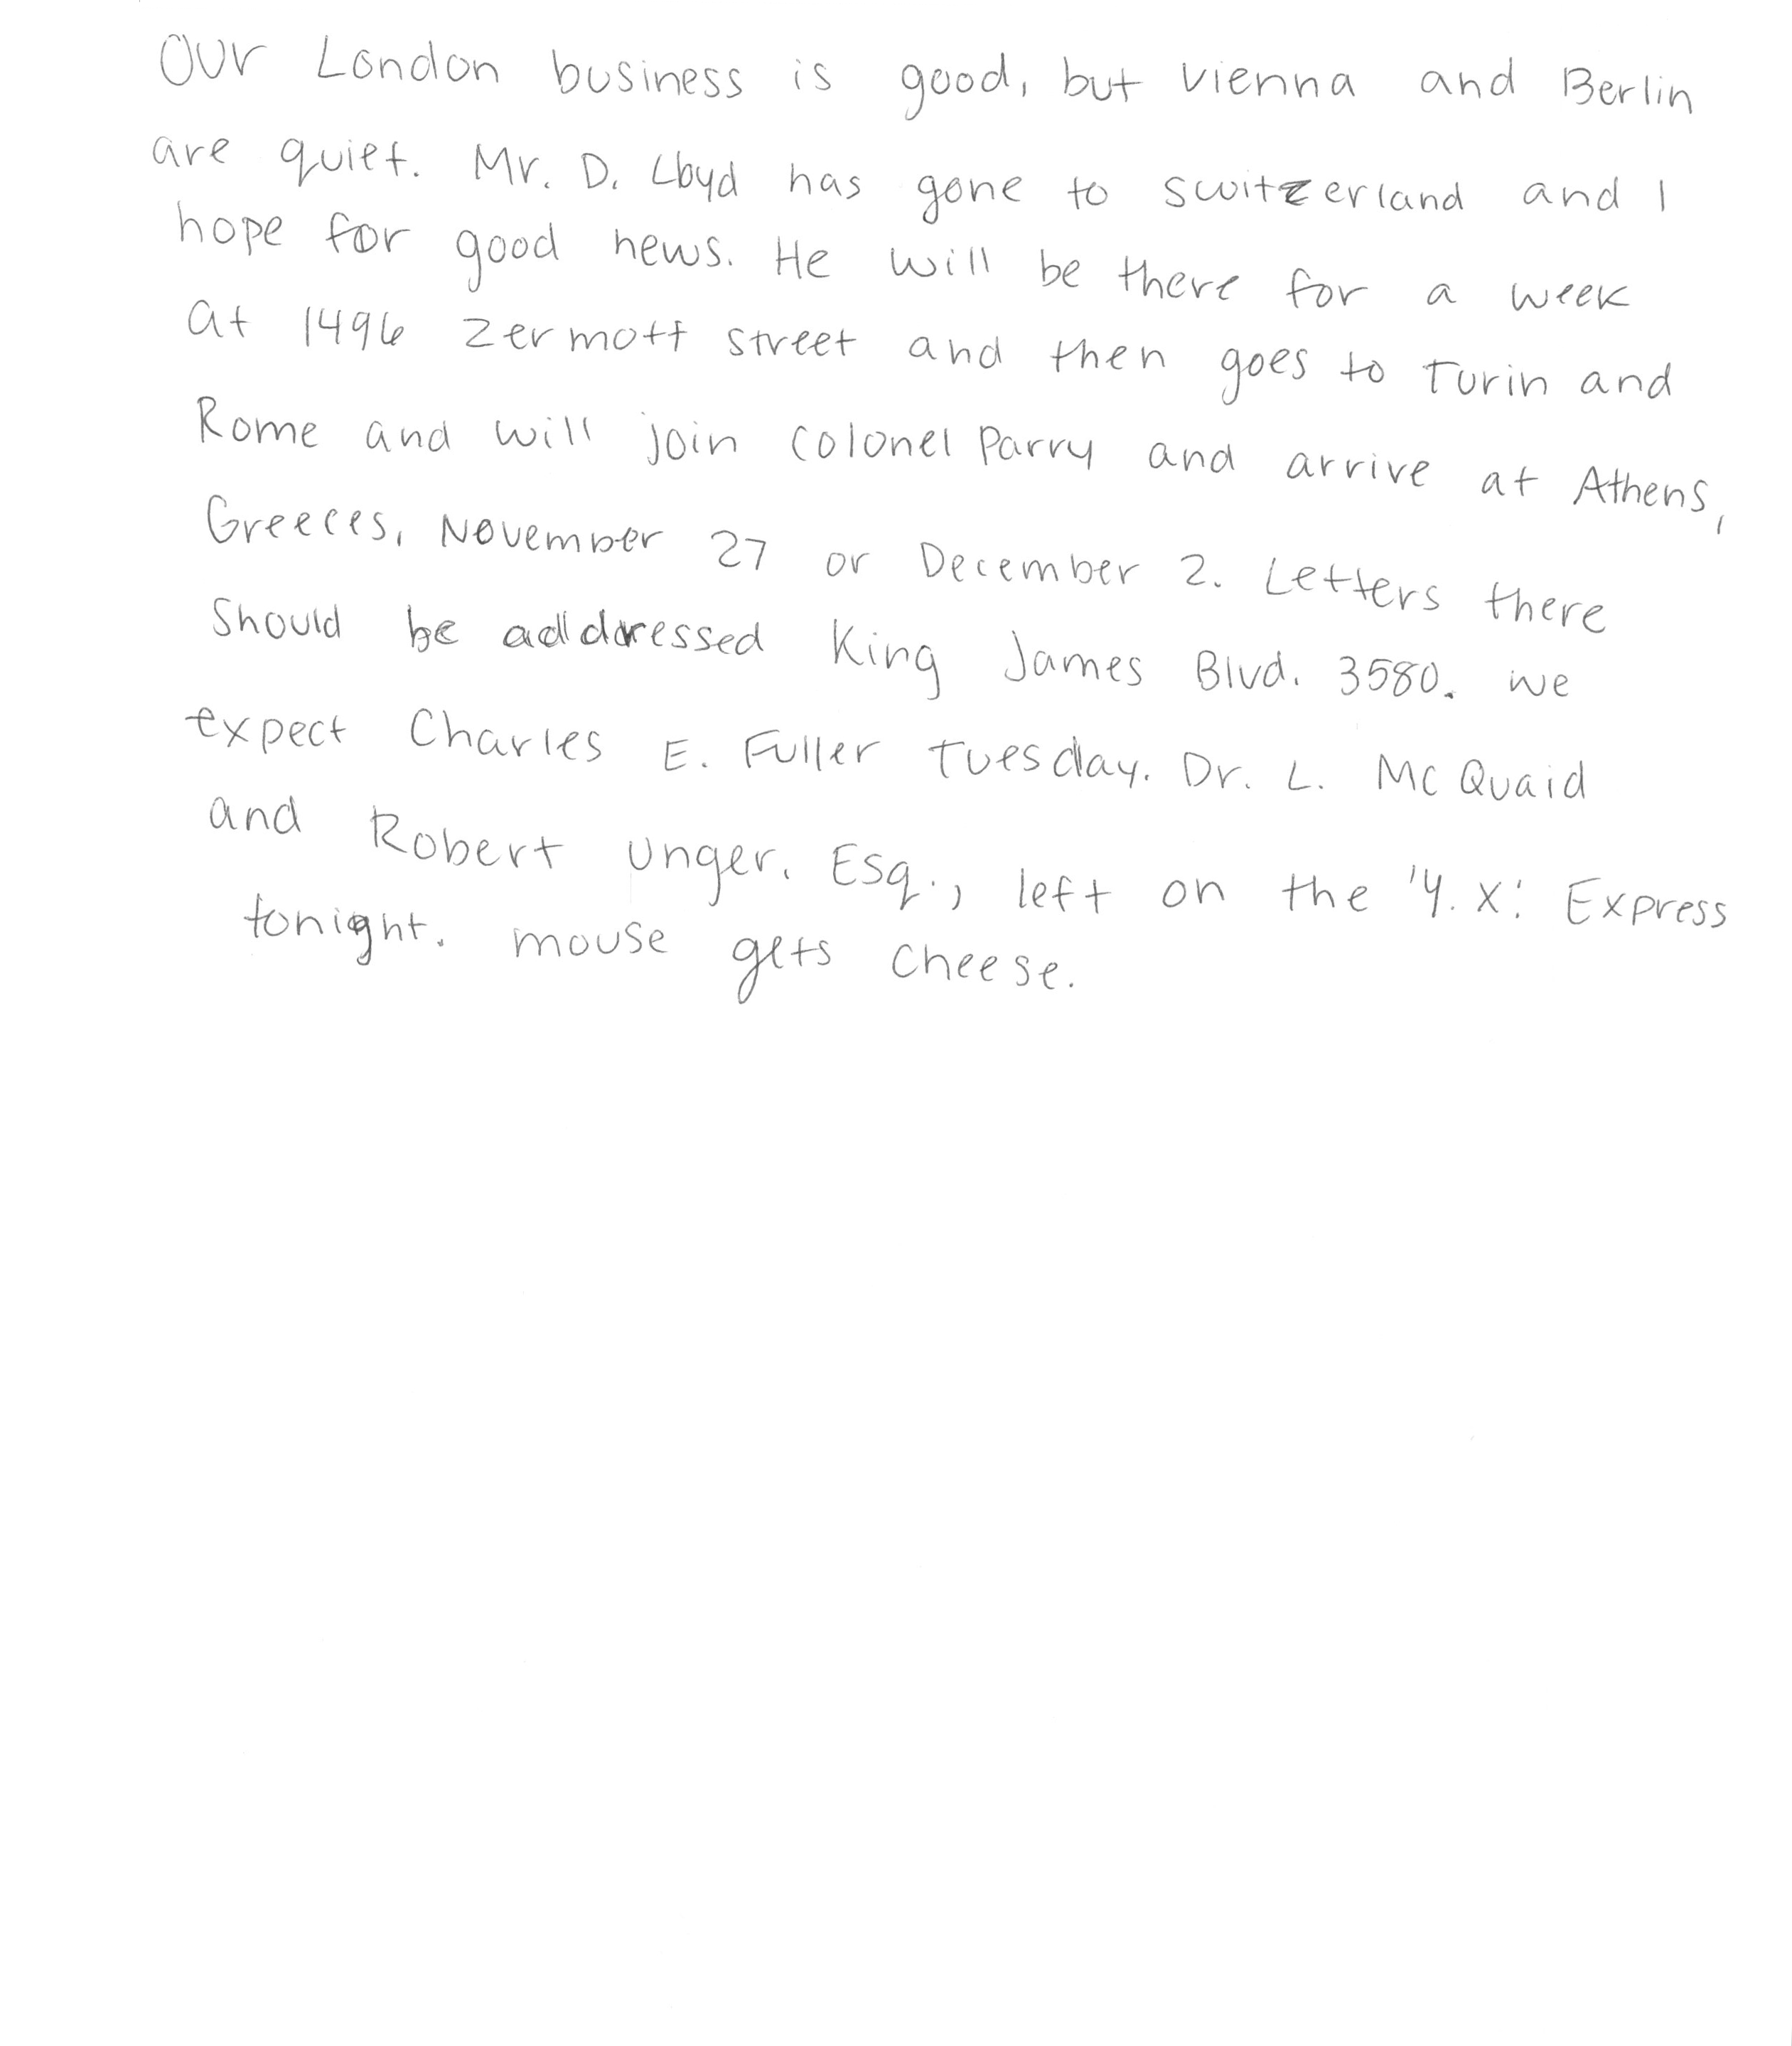 Our London business is good, but vienna and Berlin
are quiet. Mr. D. Lloyd has gone to switzerland and I
hope for good news. He will be there for a week
at 1496 zermott street and then goes to Turin and
Rome and will join colonel Parry and arrive at Athens,
Greeces, November 27 or December 2. Letters there
should be addressed King James Blvd. 3580. we
expect Charles E. Fuller Tuesday. Dr. L. McQuaid
and Robert Unger. Esq., left on the 'Y.X.' Express
tonight. mouse gets cheese.